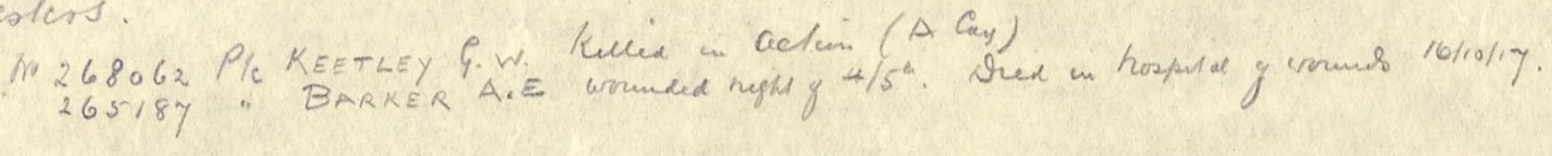 No 268062 P/c KEETLEY G. W. Killed in action (A Coy)
265187 " BARKER A.E wounded night of 4/5th. Died in hospital of wounds 16/10/17.